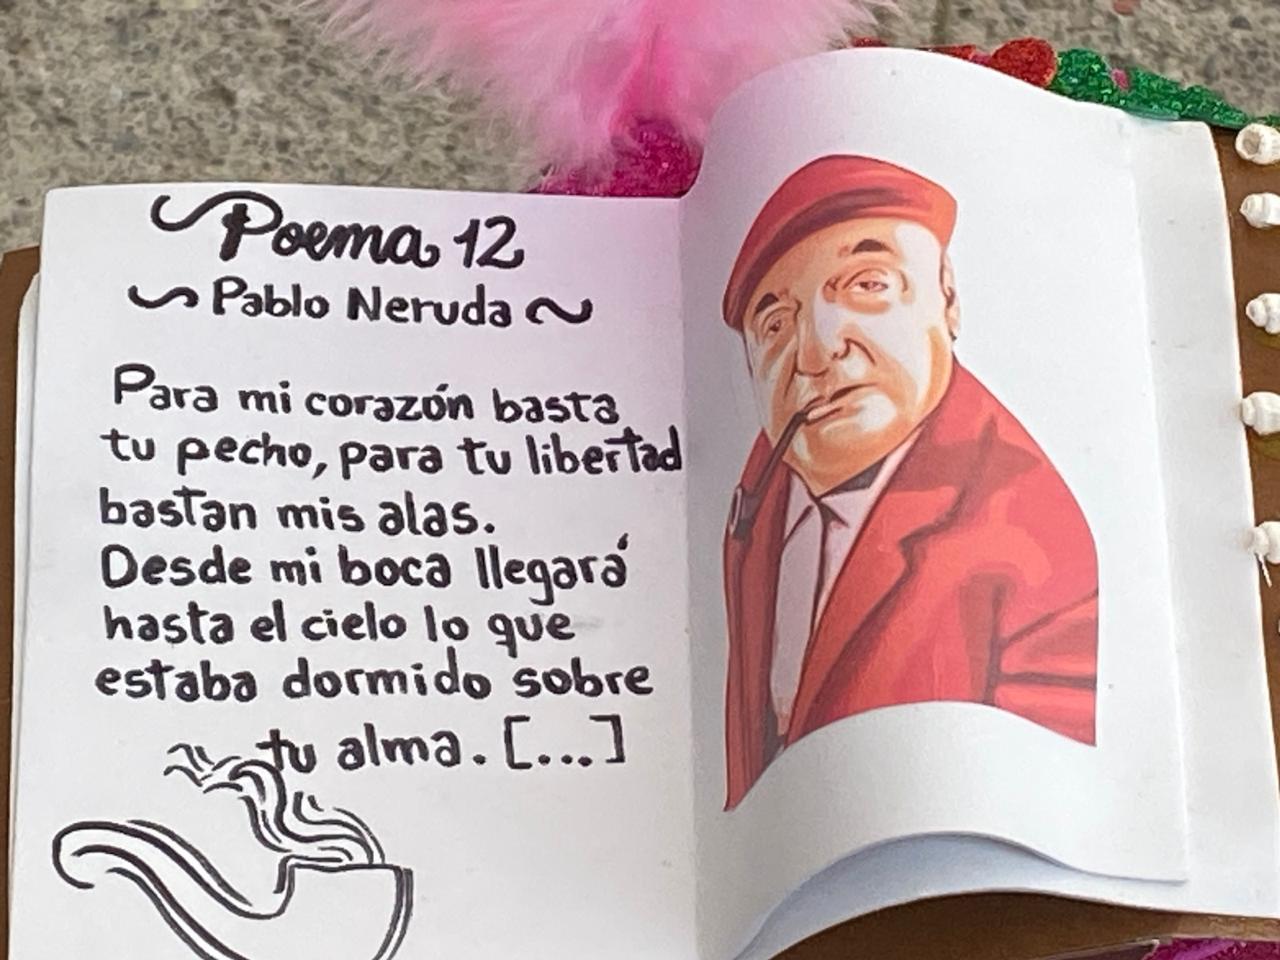 Poema 12
Pablo Neruda
Para mi corazón basta
tu pecho, para tu libertad
bastan mis alas.
Desde mi boca llegará
hasta el cielo lo que
estaba dormido sobre
tu alma. [...]